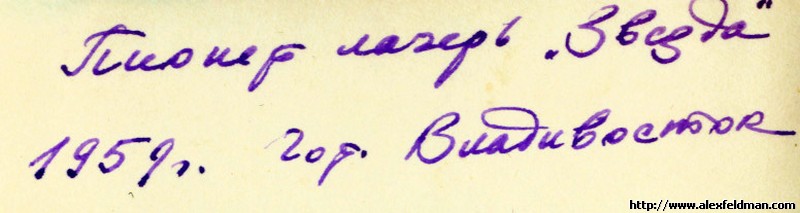 Пионер лагерь „Звезда"
1959г. гор. Владивосток
http://www.alexfeldman.com